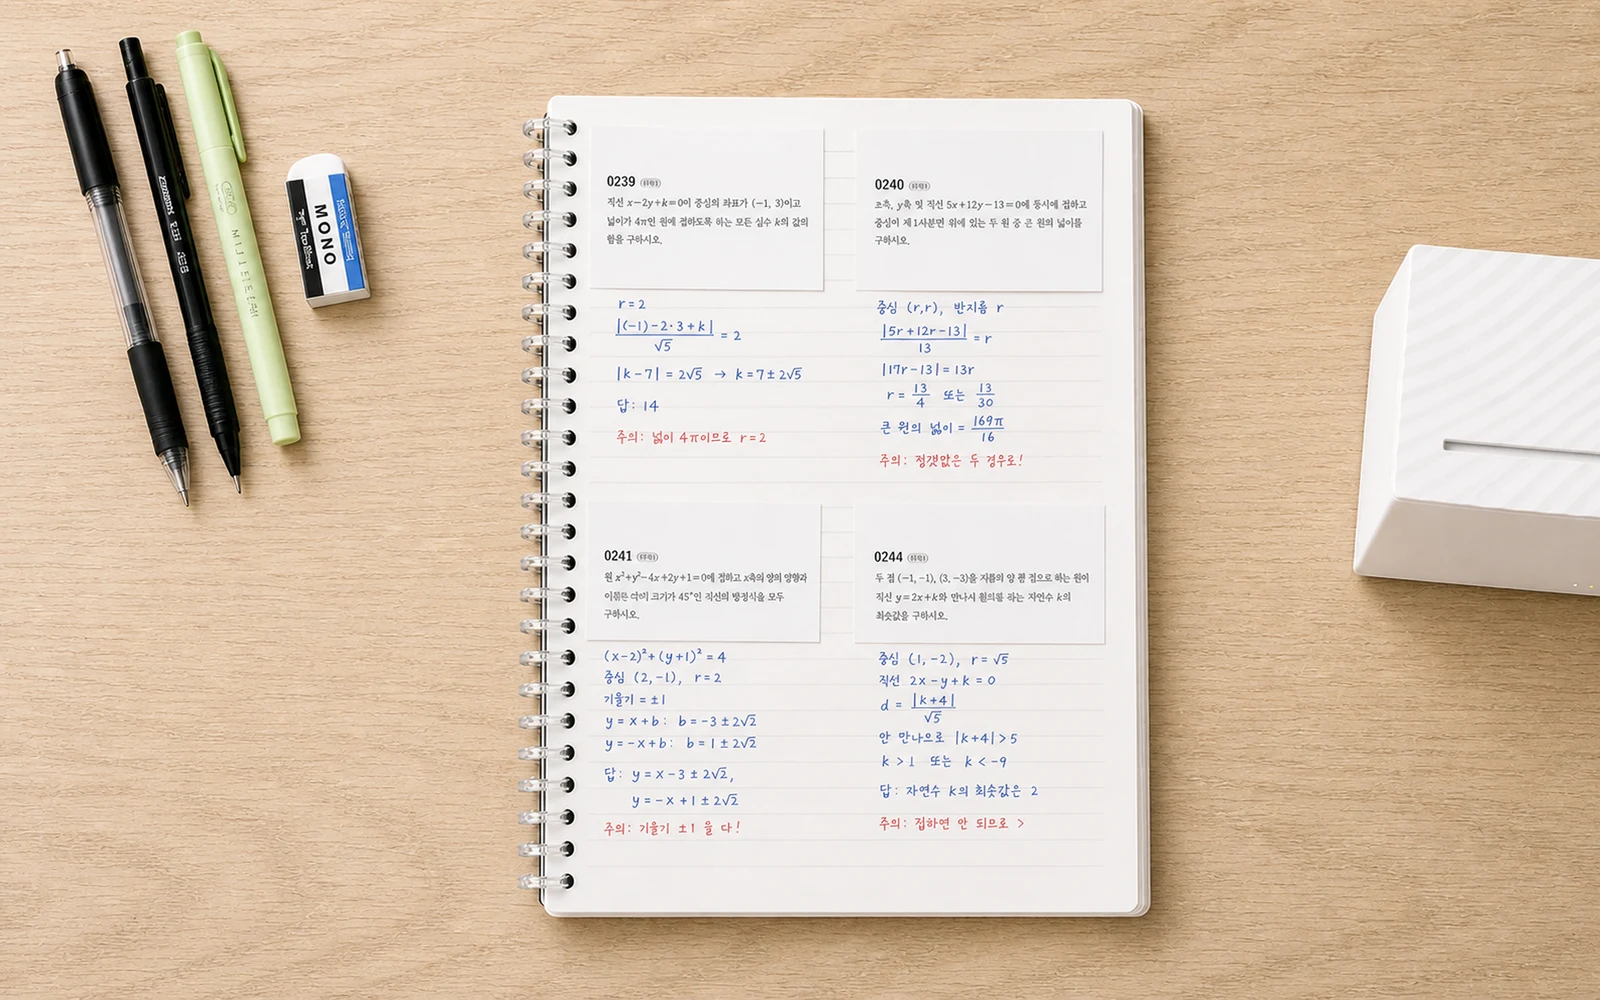 MONO
0239
직선 x−2y+k=0이 중심의 좌표가 (−1, 3)이고
넓이가 4π인 원에 접하도록 하는 모든 실수 k의 값의
합을 구하시오.
r=2
|(−1)−2·3+k| / √5 = 2
|k−7| = 2√5 → k=7±2√5
답: 14
주의: 넓이 4π이므로 r=2
0240
y축 및 직선 5x+12y−13=0에 동시에 접하고
중심이 제1사분면 위에 있는 두 원 중 큰 원의 넓이를
구하시오.
중심 (r,r), 반지름 r
|5r+12r−13| / 13 = r
|17r−13| = 13r
r = 13/4 또는 13/30
큰 원의 넓이 = 169π/16
주의: 두 경우로!
0241
원 x²+y²−4x+2y+1=0에 접하고 x축의 양의
크기가 45°인 직선의 방정식을 모두
구하시오.
(x−2)²+(y+1)² = 4
중심 (2,−1), r=2
기울기 = ±1
y = x+b: b=−3±2√2
y = −x+b: b=1±2√2
답: y = x−3±2√2,
y = −x+1±2√2
주의: 기울기 ±1 을 다!
0244
두 점 (−1, −1), (3, −3)을 지름의 양 끝 점으로 하는 원이
직선 y=2x+k와 만나지 하는 자연수 k의
최솟값을 구하시오.
중심 (1,−2), r=√5
직선 2x−y+k=0
d = |k+4| / √5
안 만나으로 |k+4|>5
k>1 또는 k<−9
답: 자연수 k의 최솟값은 2
주의: 접하면 안 되므로 >